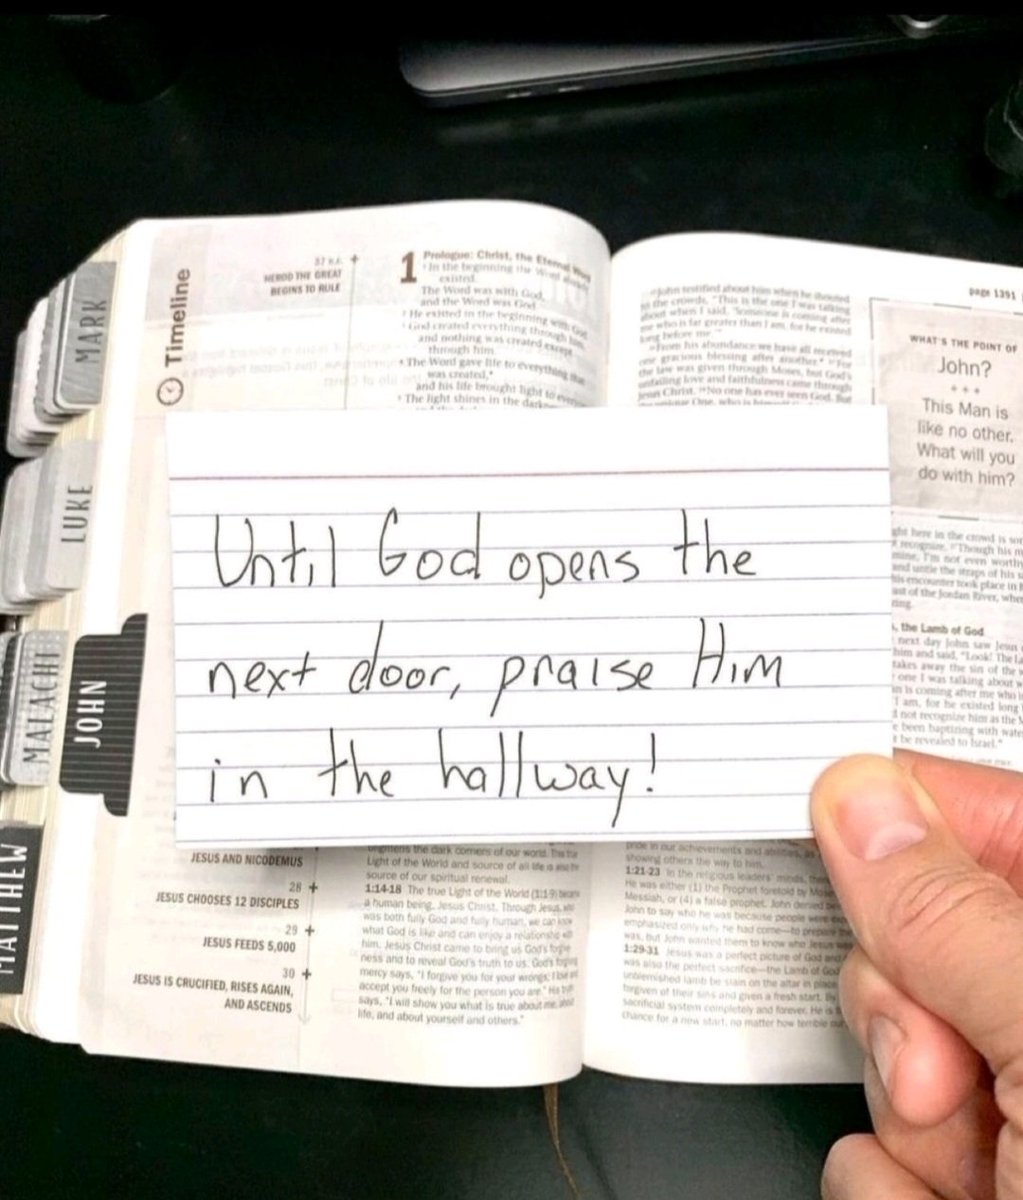 MARK
LUKE
MALACHI
JOHN
MATTHEW
Timeline
37 B.C. +
HEROD THE GREAT
BEGINS TO RULE
1
Prologue: Christ, the Eternal Word
In the beginning the Word already
existed.
The Word was with God,
and the Word was God.
He existed in the beginning with God.
God created everything through him,
and nothing was created except
through him.
The Word gave life to everything that
was created,
and his life brought light to
The light shines in the
John testified about him when he shouted
to the crowds, "This is the one I was talking
about when I said, 'Someone is coming after
me who is far greater than I am, for he existed
long before me.'"
From his abundance we have all received
one gracious blessing after another. For
the law was given through Moses, but God's
unfailing love and faithfulness came through
Jesus Christ. No one has ever seen God. But
page 1391
WHAT'S THE POINT OF
John?
This Man is
like no other.
What will you
do with him?
Until God opens the
next door, praise Him
in the hallway!
right here in the crowd is
recognize. Though his
I'm not even worthy
and untie the straps of his
encounter took place in
east of the Jordan River,
the Lamb of God
next day John saw Jesus
him and said, "Look! The
takes away the sin of the
one I was talking about
is coming after me who
I am, for he existed long
not recognize him as the
been baptizing with
be revealed to Israel."
JESUS AND NICODEMUS
28 +
JESUS CHOOSES 12 DISCIPLES
29 +
JESUS FEEDS 5,000
30 +
JESUS IS CRUCIFIED, RISES AGAIN,
AND ASCENDS
the dark corners of our world.
Light of the World and source of all life is
source of our spiritual renewal.
1:14-18 The true Light of the World (1:19)
a human being, Jesus Christ. Through Jesus,
was both fully God and fully human, we can
what God is like and can enjoy a relationship
him. Jesus Christ came to bring us God's
ness and to reveal God's truth to us. God's
mercy says, "I forgive you for your wrongs; I
accept you freely for the person you are." His
says, "I will show you what is true about me,
life, and about yourself and others."
pride in our achievements and abilities, as
showing others the way to him.
1:21-23 In the religious leaders' minds,
He was either (1) the Prophet foretold by
Messiah, or (4) a false prophet. John denied
John to say who he was because people were
emphasized only why he had come—to prepare
was, but John wanted them to know who Jesus was
1:29-31 Jesus was a perfect picture of God and
was also the perfect sacrifice—the Lamb of God
unblemished lamb be slain on the altar in place
forgiven of their sins and given a fresh start.
sacrificial system completely and forever. He is
chance for a new start, no matter how terrible